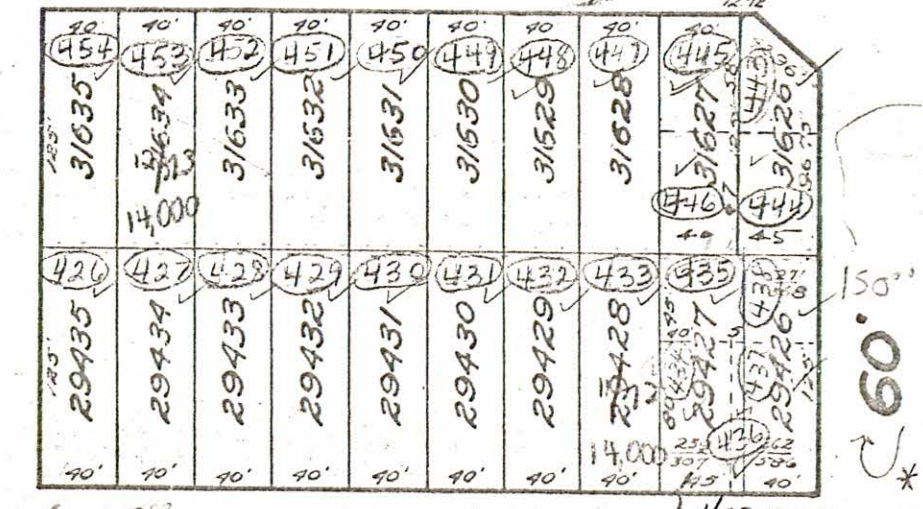 40' 40' 40' 40' 40' 40' 40' 40' 40'
454 453 452 451 450 449 448 447 445 443
31635 31634 31633 31632 31631 31630 31629 31628 31627 31626
125'
14,000
446 444
40 45
426 427 428 429 430 431 432 433 435 438
150°°
29435 29434 29433 29432 29431 29430 29429 29428 29427 29426
125' 45 40' 5 434 437 125'
60'
14,000 436
40' 40' 40' 40' 40' 40' 40' 40' 45' 40'
*